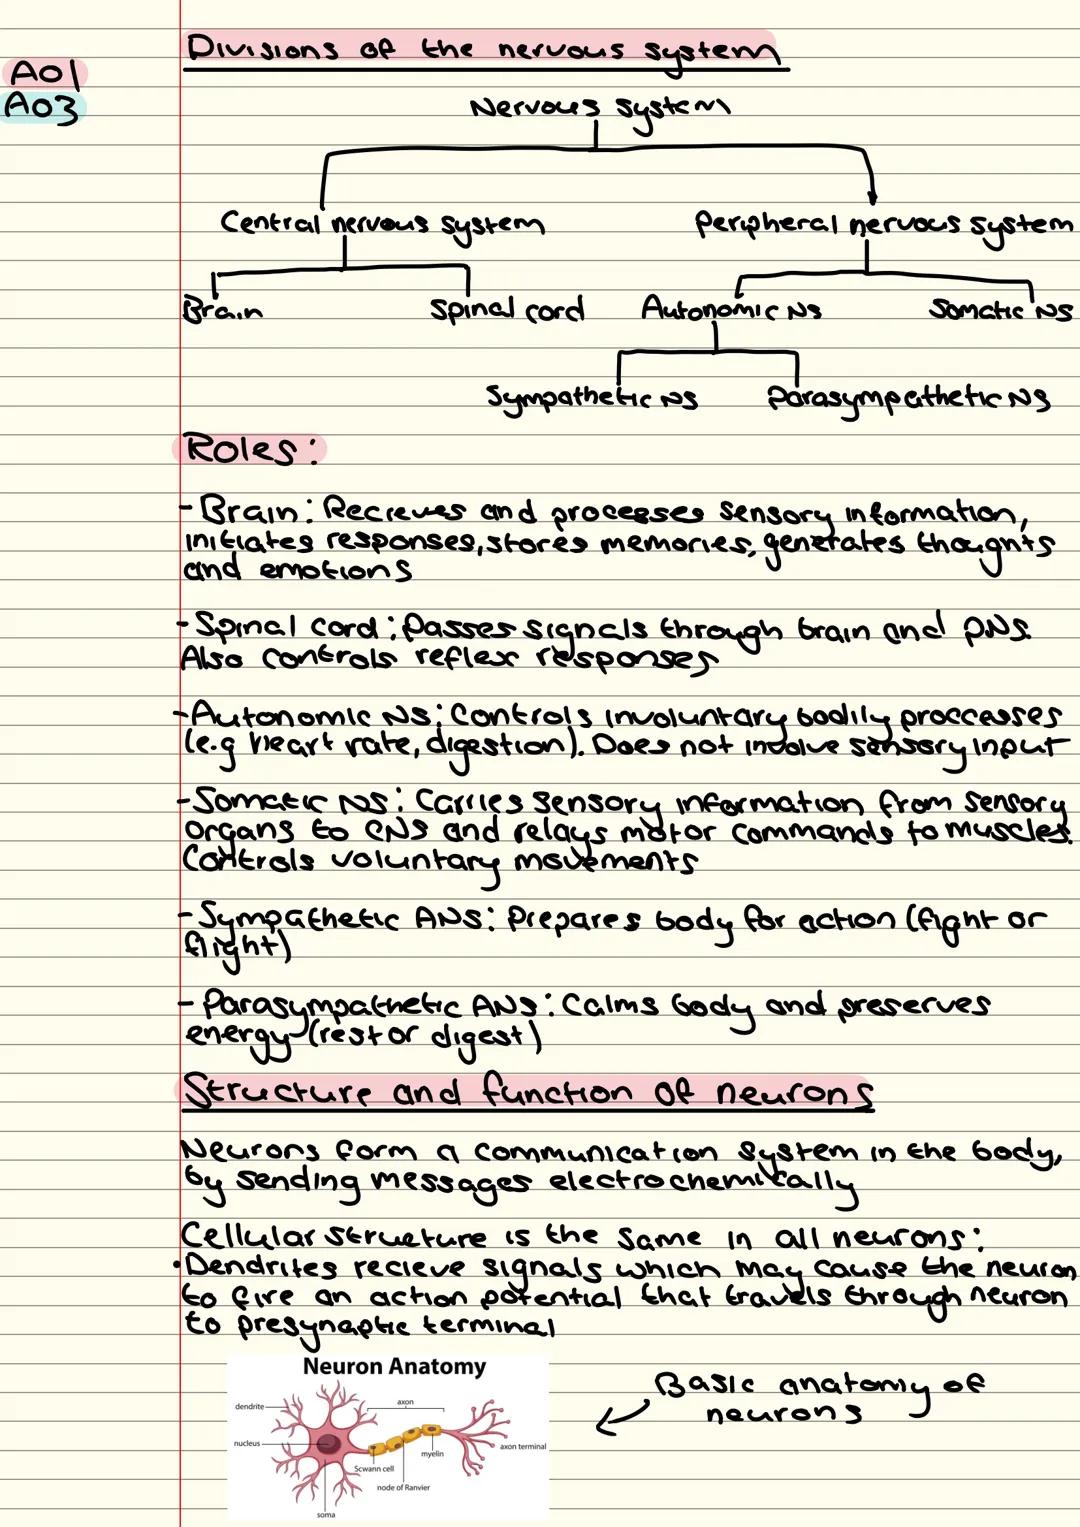 Divisions of the nervous system
A01
A03
Nervous system
Central nervous system
Peripheral nervous system
Brain
Spinal cord
Autonomic NS
Somatic NS
Sympathetic NS
Parasympathetic NS
Roles:
-Brain: Recieves and processes sensory information,
initiates responses, stores memories, generates thoughts
and emotions
-Spinal cord: Passes signals through brain and PNS.
Also controls reflex responses
-Autonomic NS: Controls involuntary bodily proccesses
(e.g heart rate, digestion). Does not involve sensory input
-Somatic NS: Carries sensory information from sensory
organs to CNS and relays motor commands to muscles.
Controls voluntary movements
-Sympathetic ANS: Prepares body for action (fight or
flight)
-Parasympathetic ANS: Calms body and preserves
energy (rest or digest)
Structure and function of neurons
Neurons form a communication system in the body,
by sending messages electrochemically
Cellular structure is the same in all neurons:
•Dendrites recieve signals which may cause the neuron
to fire an action potential that travels through neuron
to presynaptic terminal
Neuron Anatomy
dendrite
axon
nucleus
axon terminal
myelin
Scwann cell
node of Ranvier
soma
Basic anatomy of
neurons